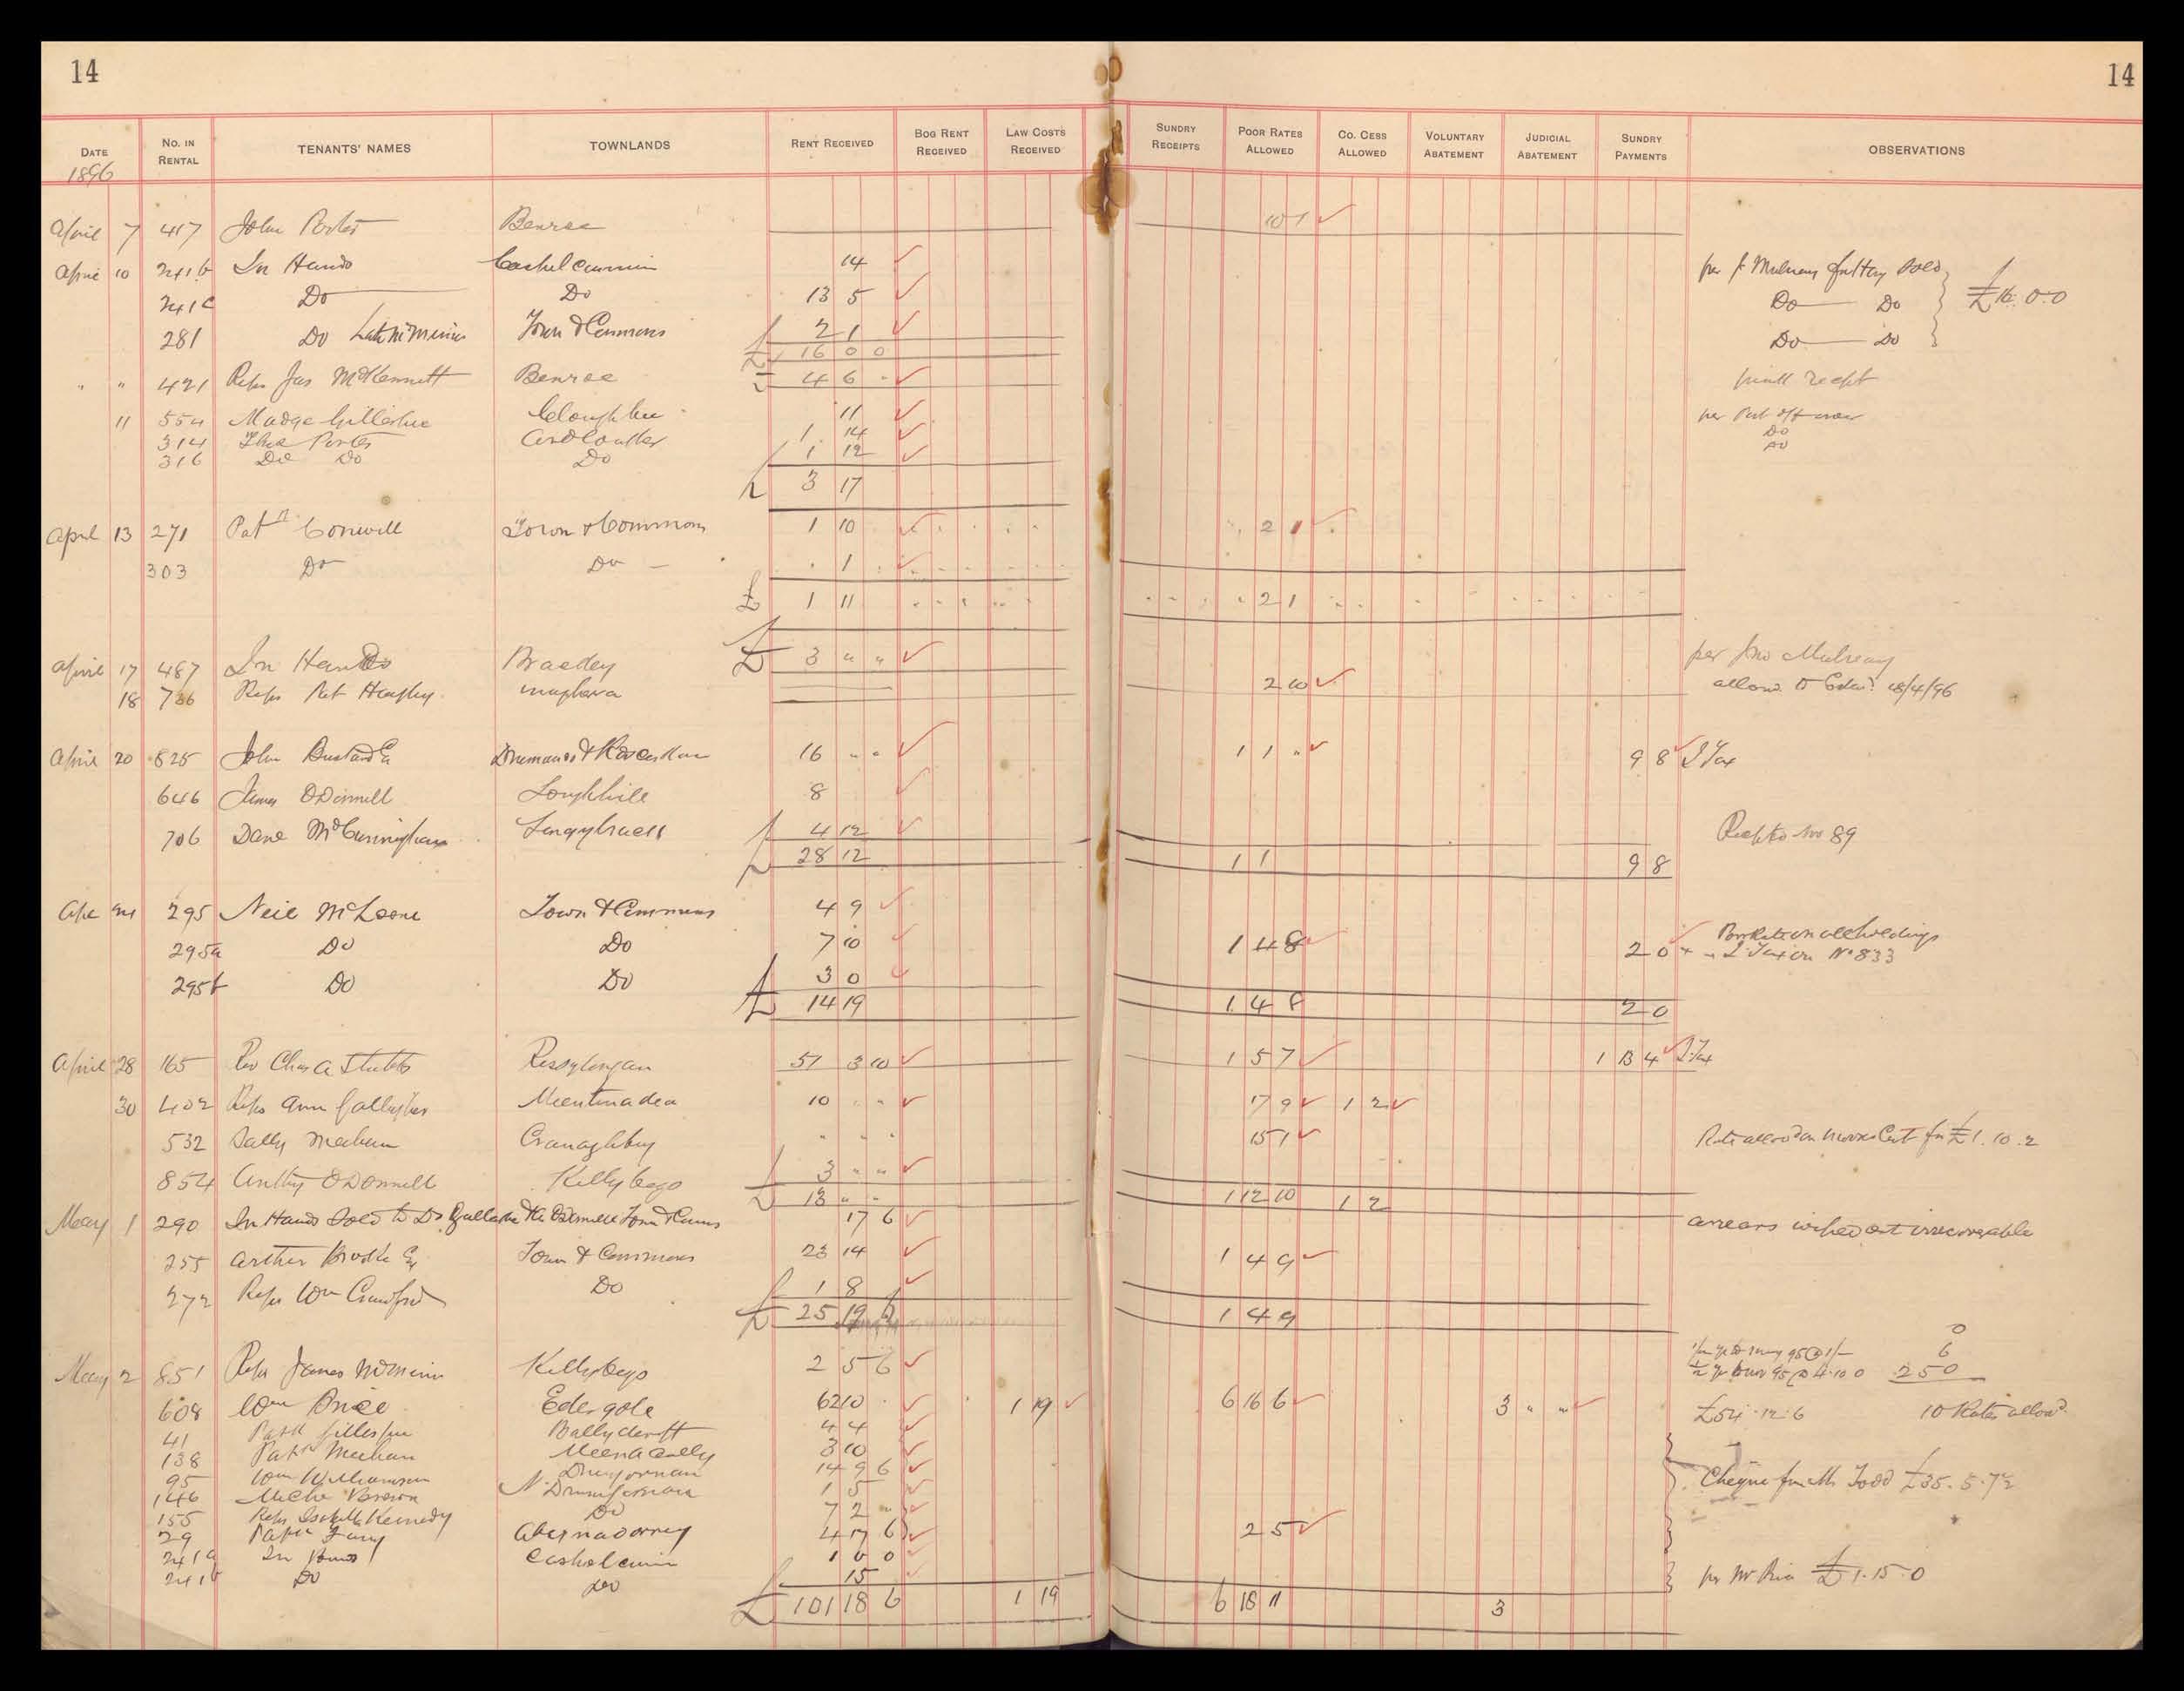 14 14
DATE No. IN RENTAL TENANTS' NAMES TOWNLANDS RENT RECEIVED BOG RENT RECEIVED LAW COSTS RECEIVED SUNDRY RECEIPTS POOR RATES ALLOWED CO. CESS ALLOWED VOLUNTARY ABATEMENT JUDICIAL ABATEMENT SUNDRY PAYMENTS OBSERVATIONS
1896
April 7 417 John Porter Benroe 10 1
April 10 241b In Hands Cashelcummin 14 per J. Mulreany for Hay sold
241c Do Do 13 5 Do Do £16.0.0
281 Do Late McMenin Town & Commons 2 1 Do Do
£ 16 0 0
" " 421 Reps Jas Benroe 4 6 - receipt
11 554 Madge Gillespie 11 per Post off order
314 Porter 1 14 Do
316 Do Do Do 1 12 Do
£ 3 17
April 13 271 Patk Conwell Town & Commons 1 10 2 1
303 Do Do 1
£ 1 11 2 1
April 17 487 In Hands Brackey £ 3 " " per Jno Mulreany
18 736 Reps Pat Heaphy Maghera 2 10 allowd to 18/4/96
April 20 825 John Bustard Esq Drumanoo & 16 " " 1 1 " 9 8 I Tax
646 James O'Donnell Loughhill 8
706 Dane McCunningham 4 12 Receipt No 89
£ 28 12 1 1 9 8
Apl 21 295 Neil McLoone Town & Commons 4 9
295a Do Do 7 10 1 4 8 2 0 Poor Rate on all holdings
I Tax on No 833
295b Do Do 3 0
£ 14 19 1 4 8 2 0
April 28 165 Rev Chas A Stubbs Rossylongan 57 3 10 1 5 7 1 13 4 I Tax
30 402 Reps Ann Gallagher Meentinadea 10 " " 17 9 1 2
532 Sally Meehan Cranaghboy " " " 15 1 Rate allowd on Cert for £1.10.2
854 Anthy O'Donnell Killybegs 3 " "
£ 13 " " 1 12 10 1 2
May 1 290 In Hands Sold to Town & Comns 17 6 arrears wiped out irrecoverable
255 Arthur Brooke Esq Town & Commons 23 14 1 4 9
272 Reps Wm Crawford Do 1 8
£ 25 19 6 1 4 9
May 2 851 Reps James McMenin Killybegs 2 5 6 2 5 0
608 Wm Price Edergole 62 10 1 19 6 16 6 3 " " £54.12.6 10 Rates allowd
41 Patk Gillespie Ballycloft 4 4
138 Patk Meehan Meenacally 3 10
95 Wm Williamson Drimgorman 14 9 6 Cheque from Mr Todd £35.5.7½
146 Michl Breson N. Drumgorman 1 5
155 Reps Isabella Kennedy Do 7 2 "
29 Patk 4 17 6 2 5
241a In Hands Cashelcumin 1 0 0
241b Do Do 15 per Mr Price £1.15.0
£ 101 18 6 1 19 6 18 11 3